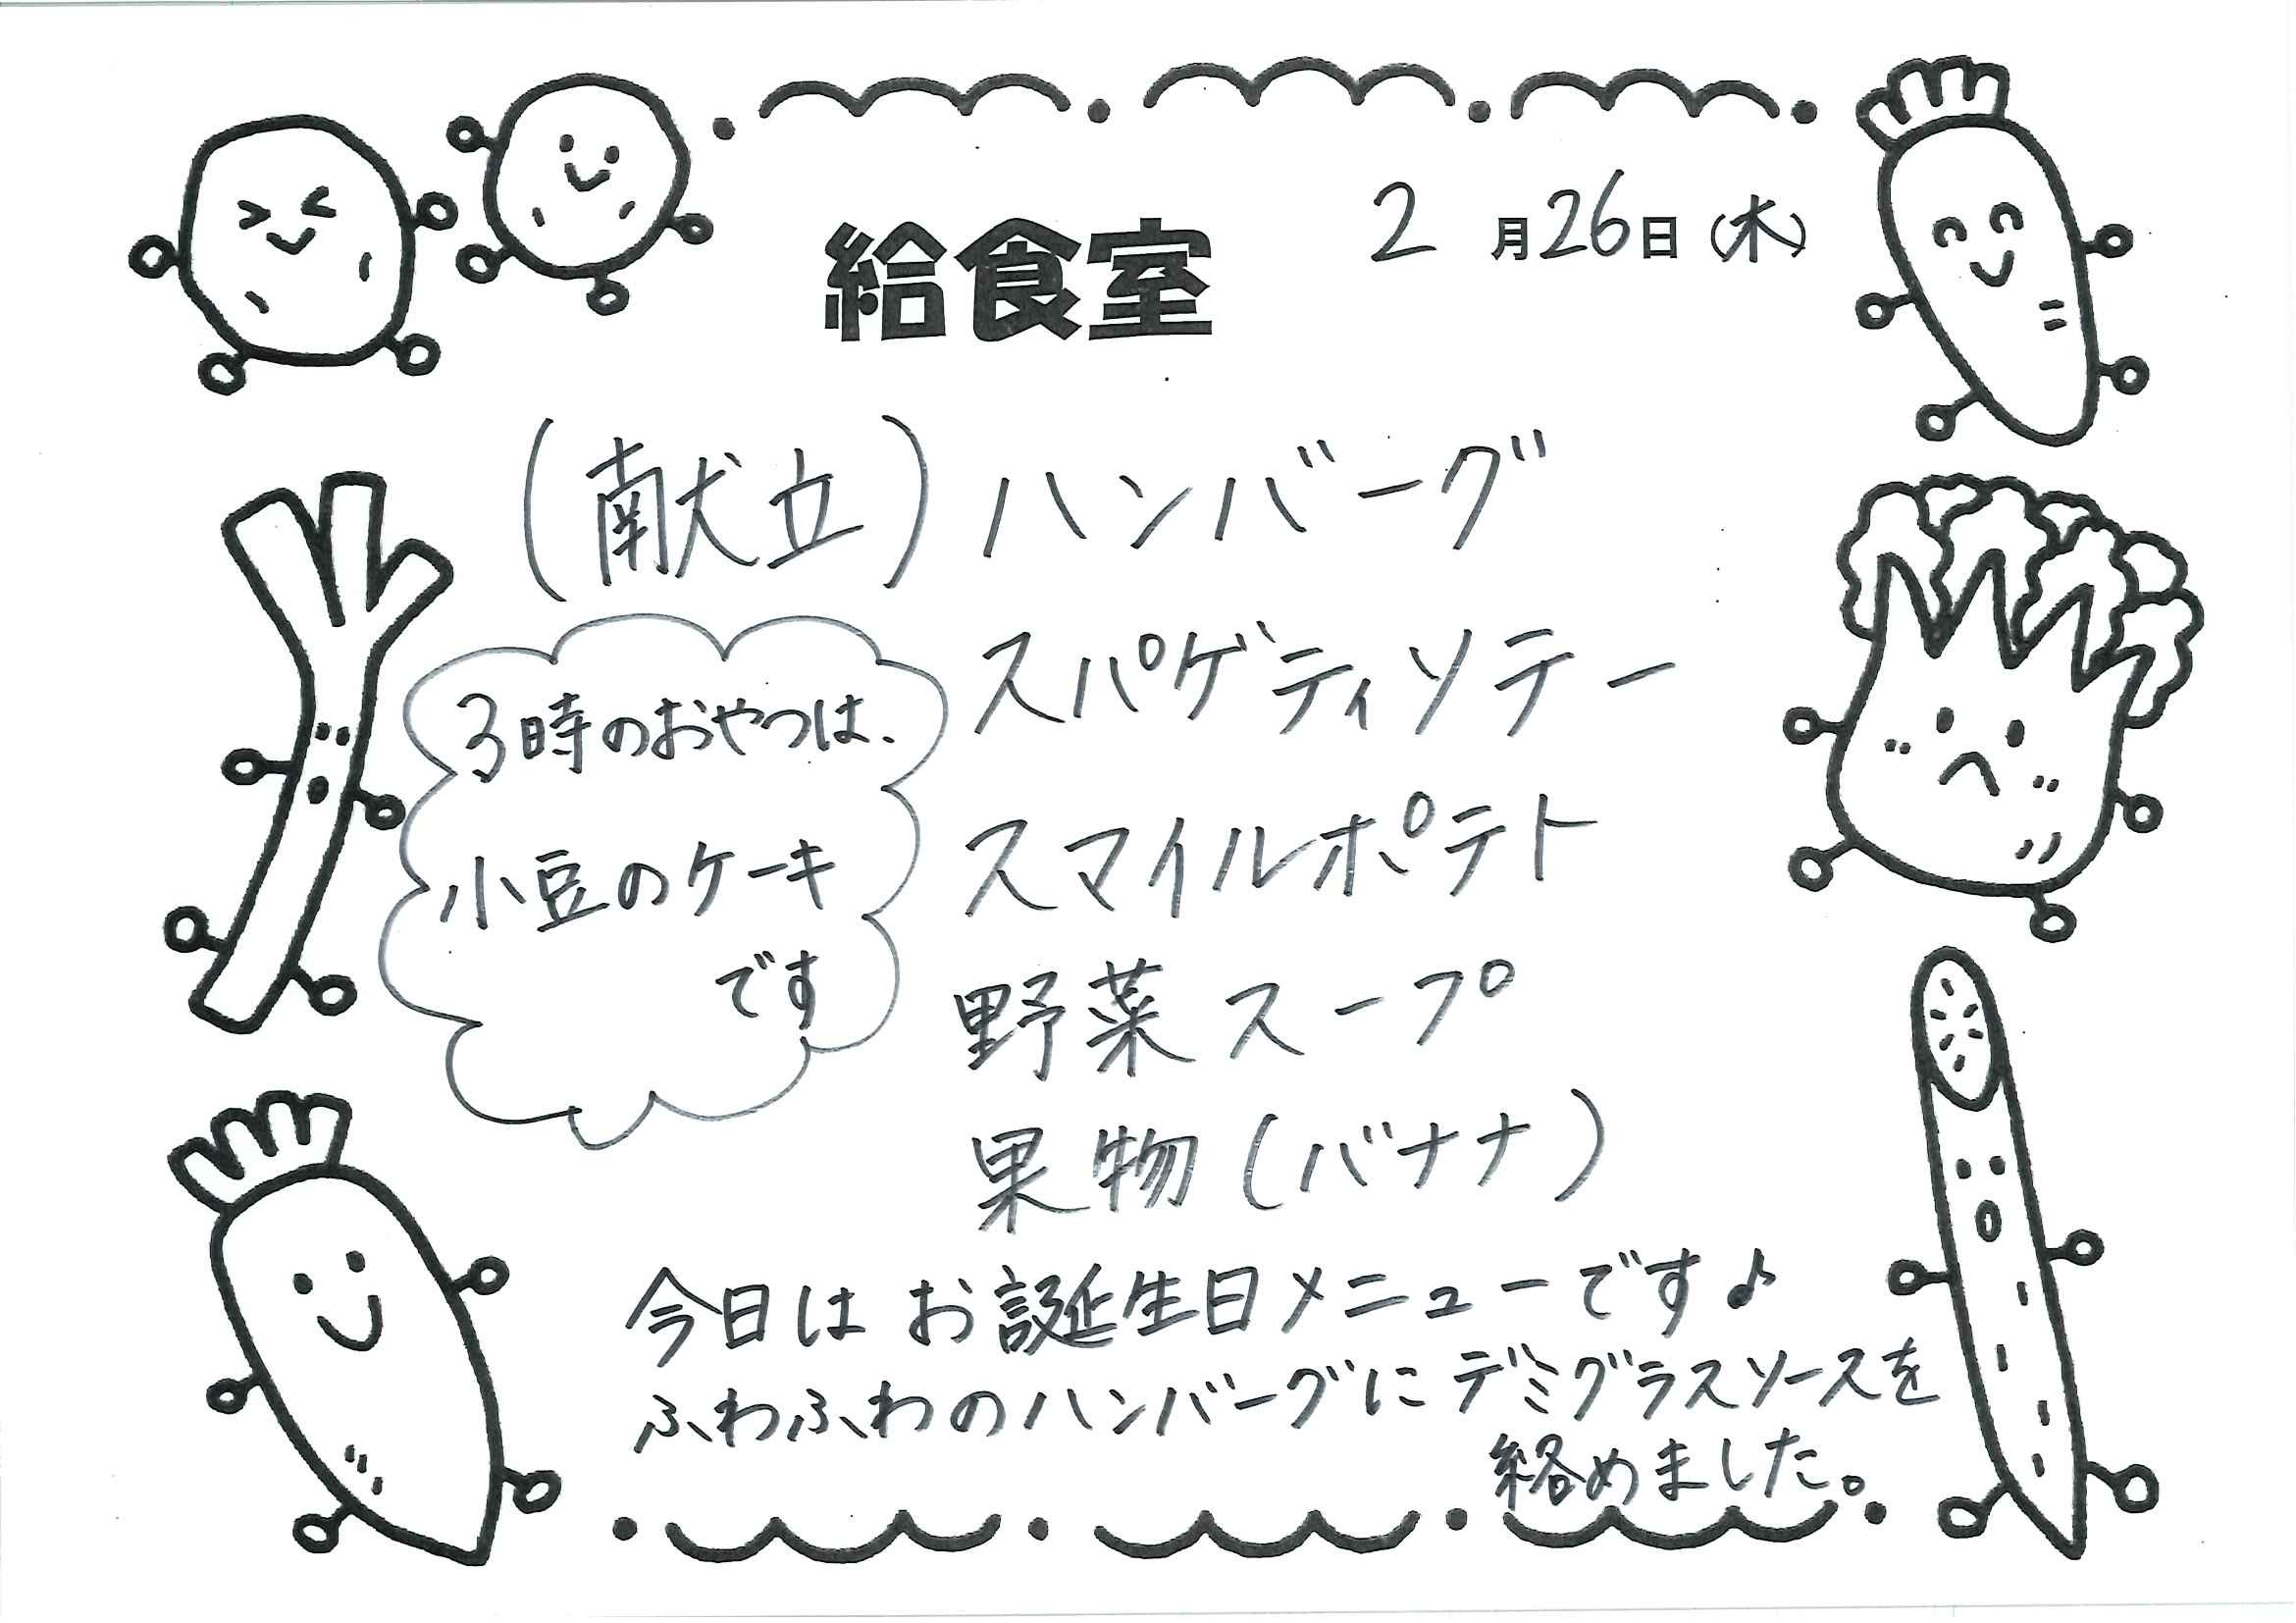 給食室
2月26日(木)
(献立)ハンバーグ
スパゲティソテー
スマイルポテト
野菜スープ
果物(バナナ)
3時のおやつは、
小豆のケーキ
です
今日はお誕生日メニューです♪
ふわふわのハンバーグにデミグラスソースを
絡めました。